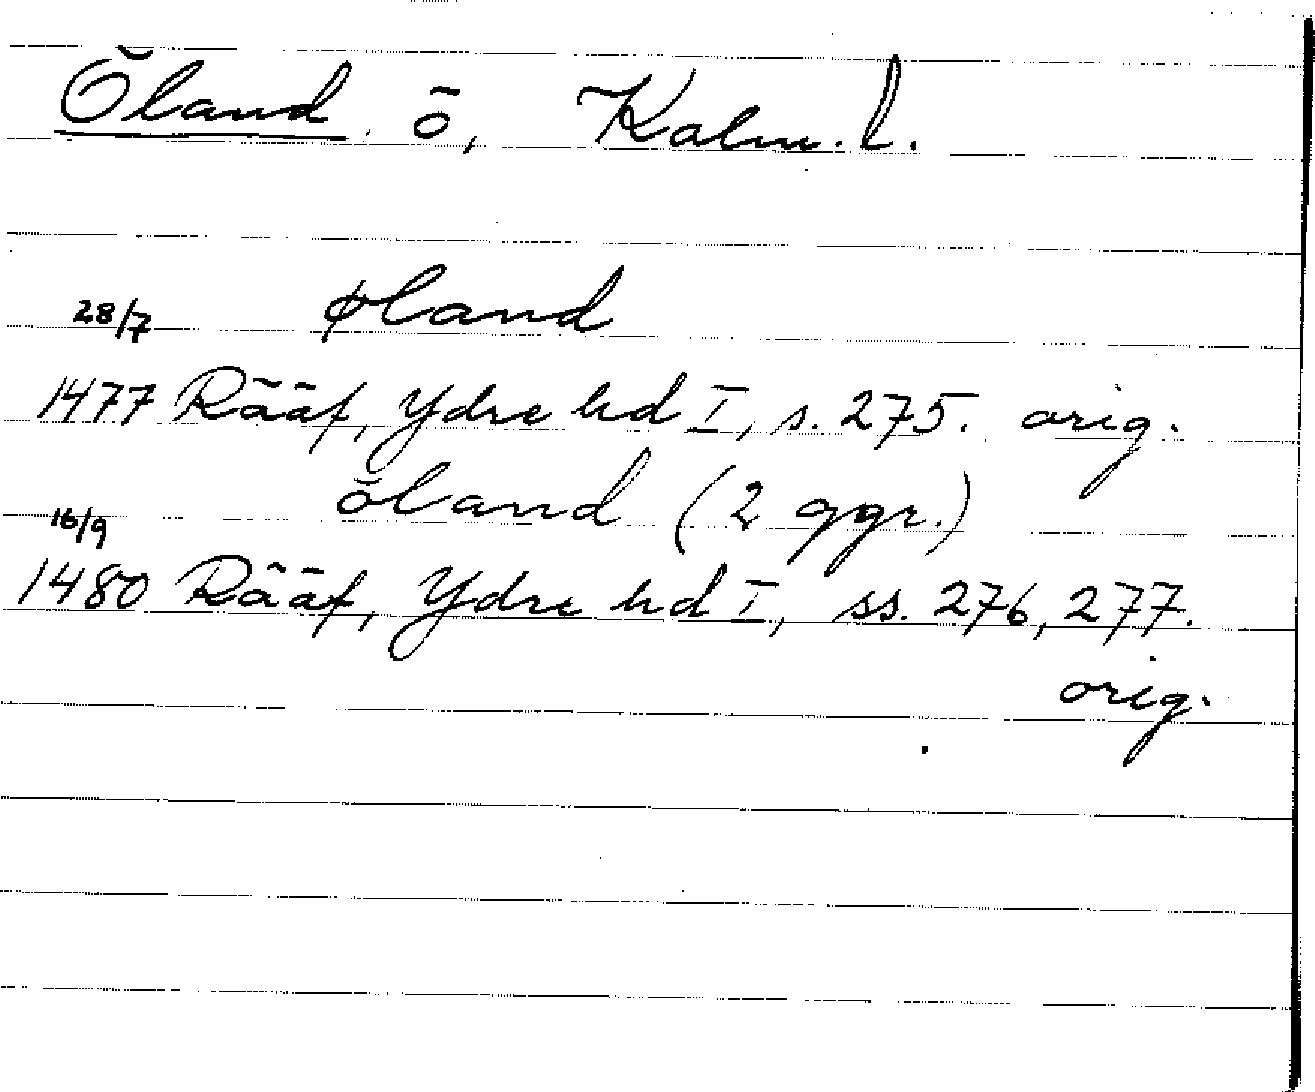 Öland ö, Kalm. l.
28/7 øland
1477 Rääf, Ydre hd I, s. 275. orig.
öland (2 ggr.)
16/9
1480 Rääf, Ydre hd I, ss. 276, 277.
orig.